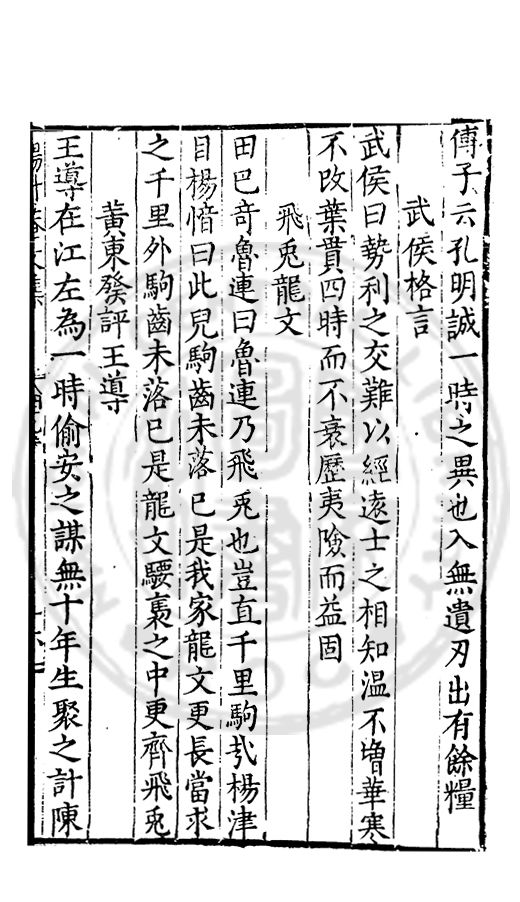 傅子云孔明誠一時之異也入無遺刃出有餘糧
武侯格言
武侯曰勢利之交難以經遠士之相知溫不增華寒
不改葉貫四時而不衰歷夷險而益固
飛兎龍文
田巴竒魯連曰魯連乃飛兎也豈直千里駒㢤楊津
目楊愔曰此兒駒齒未落已是我家龍文更長當求
之千里外駒齒未落已是龍文騕褭之中更齊飛兎
黃東發評王導
王導在江左為一時偷安之謀無十年生聚之計陳